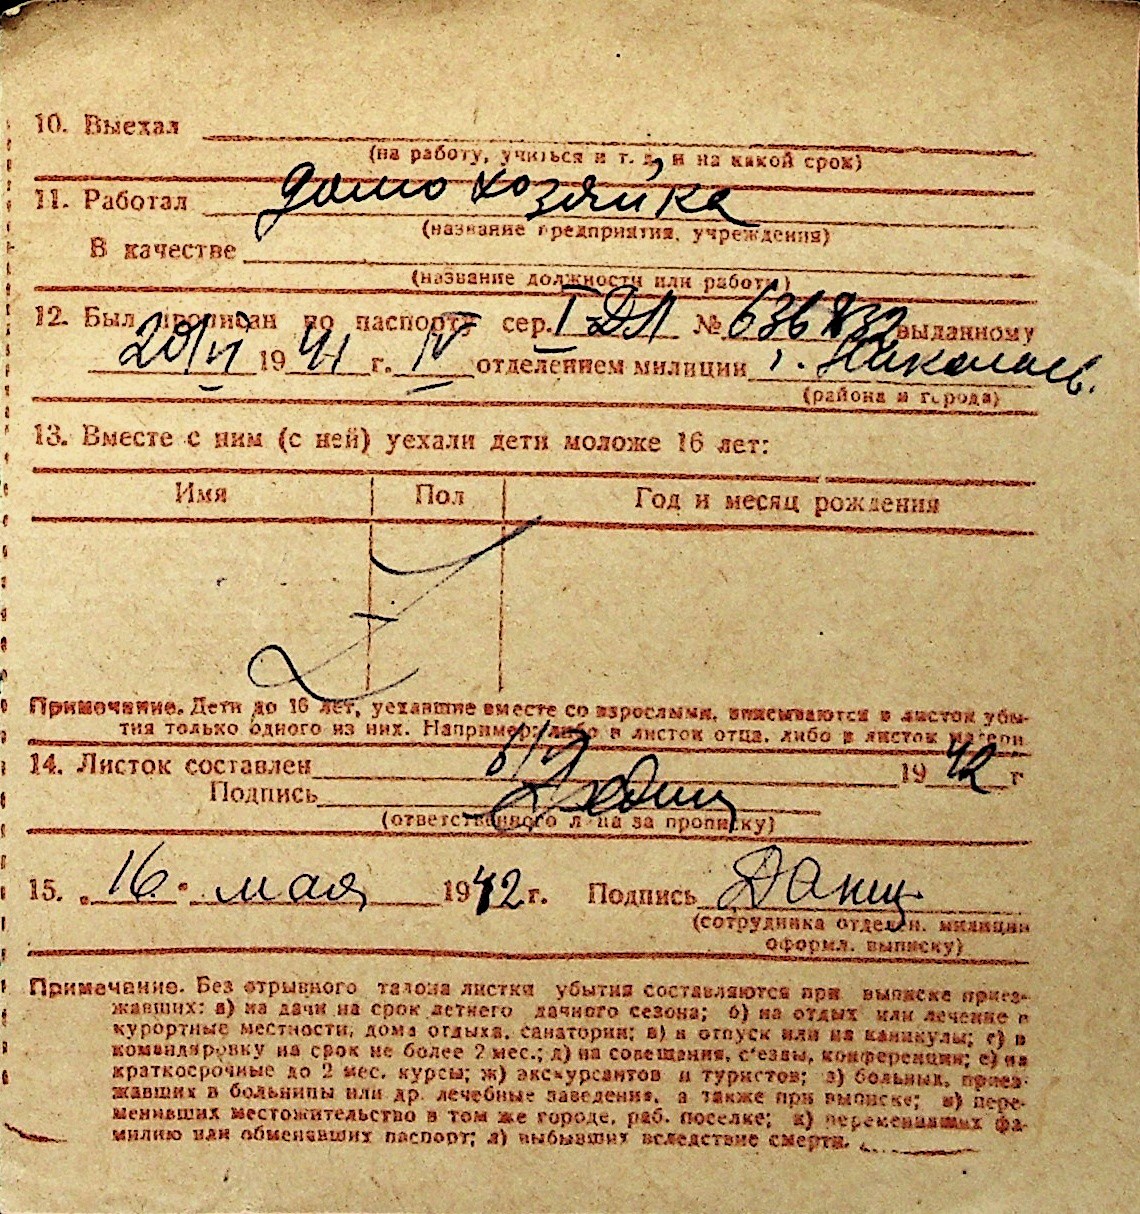 10. Выехал
(на работу, учиться и т. д. и на какой срок)
11. Работал домохозяйка
(название предприятия, учреждения)
В качестве
(название должности или работы)
12. Был прописан по паспорту сер. I ДЛ № 636832 выданному
20/VI 19 41 г. IV отделением милиции г. Николаев.
(района и города)
13. Вместе с ним (с ней) уехали дети моложе 16 лет:
Имя Пол Год и месяц рождения
Примечание. Дети до 16 лет, уехавшие вместе со взрослыми, вписываются в листок убы-
тия только одного из них. Например: либо в листок отца, либо в листок матери
14. Листок составлен 19 42 г
Подпись
(ответственного лица за прописку)
15. „16" мая 1942 г. Подпись
(сотрудника отделен. милиции
оформл. выписку)
Примечание. Без отрывного талона листки убытия составляются при выписке приез-
жавших: а) на дачи на срок летнего дачного сезона; б) на отдых или лечение в
курортные местности, дома отдыха, санатории; в) в отпуск или на каникулы; г) в
командировку на срок не более 2 мес.; д) на совещания, с'езды, конференции; е) на
краткосрочные до 2 мес. курсы; ж) экскурсантов и туристов; з) больных, приез-
жавших в больницы или др. лечебные заведения, а также при выписке; и) пере-
менивших местожительство в том же городе, раб. поселке; к) переменивших фа-
милию или обменявших паспорт; л) выбывших вследствие смерти.